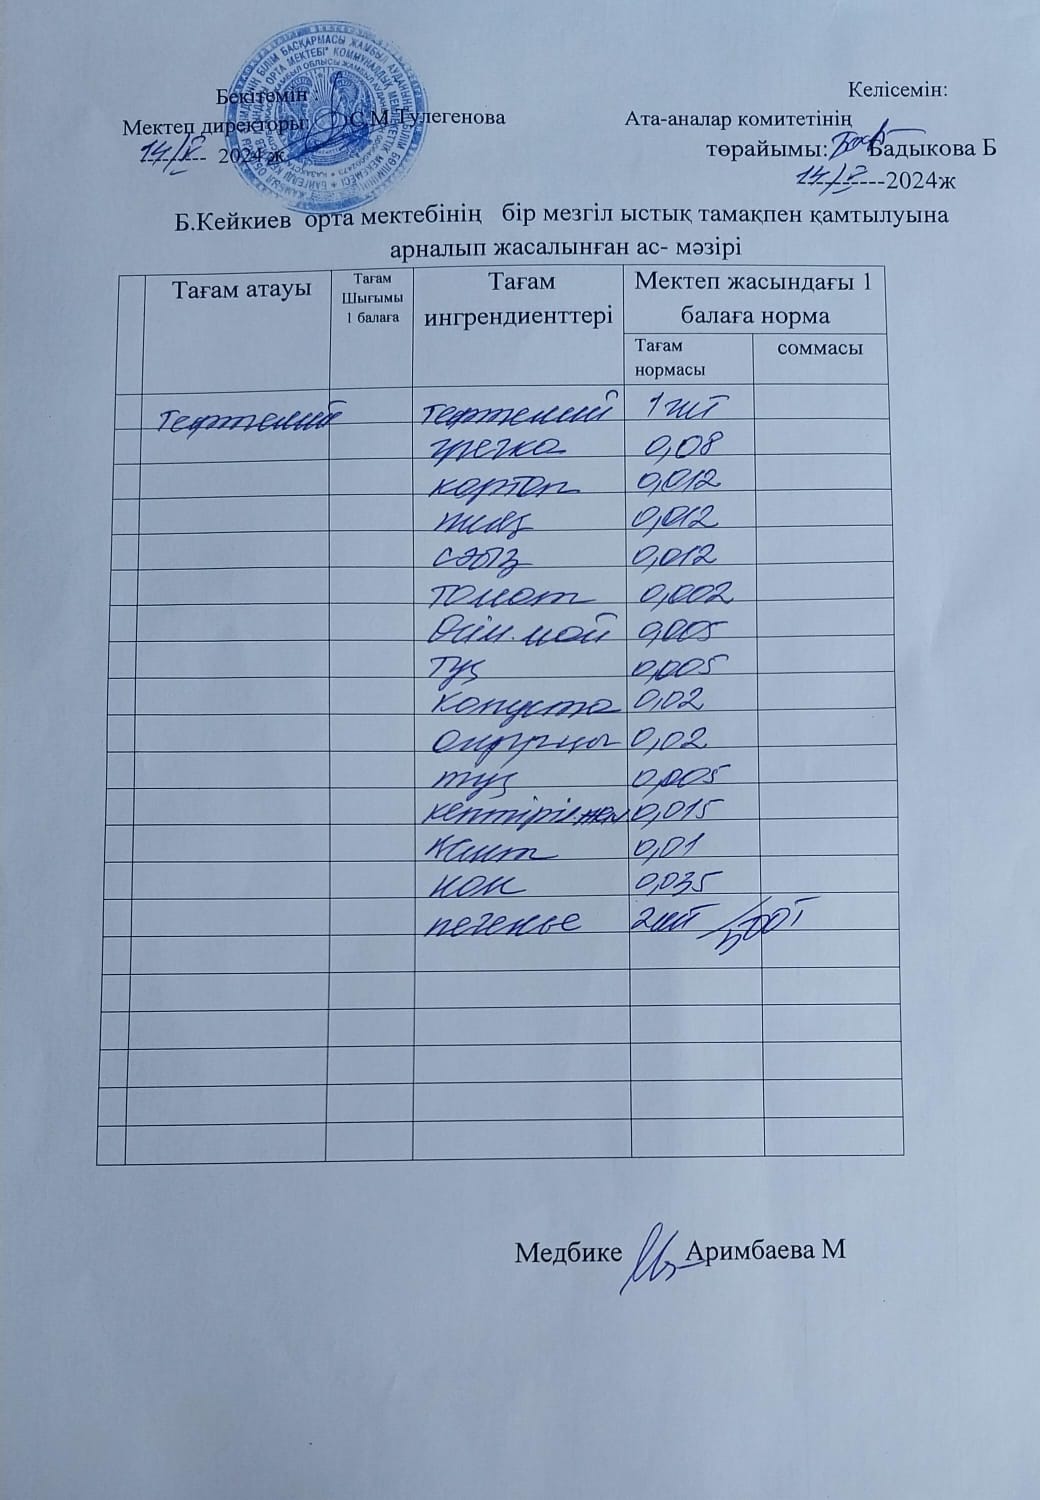 Бекітемін :
Келісемін:
Мектеп директоры: С.М.Тулегенова
Ата-аналар комитетінің
14/V 2024 ж
төрайымы: Бадыкова Б
14/V ---------2024ж
Б.Кейкиев орта мектебінің бір мезгіл ыстық тамақпен қамтылуына
арналып жасалынған ас- мәзірі
Тағам атауы
Тағам
Шығымы
1 балаға
Тағам
ингрендиенттері
Мектеп жасындағы 1
балаға норма
Тағам
нормасы
соммасы
Тефтелий Тефтелий 1 шт
гречка 0,08
картоп 0,012
пияз 0,012
сәбіз 0,012
томат 0,002
Өсім. май 0,005
Тұз 0,005
Капуста 0,02
Огурцы 0,02
тұз 0,005
кептіріл.жем 0,015
Қант 0,01
нан 0,035
печенье 2шт
Медбике Аримбаева М